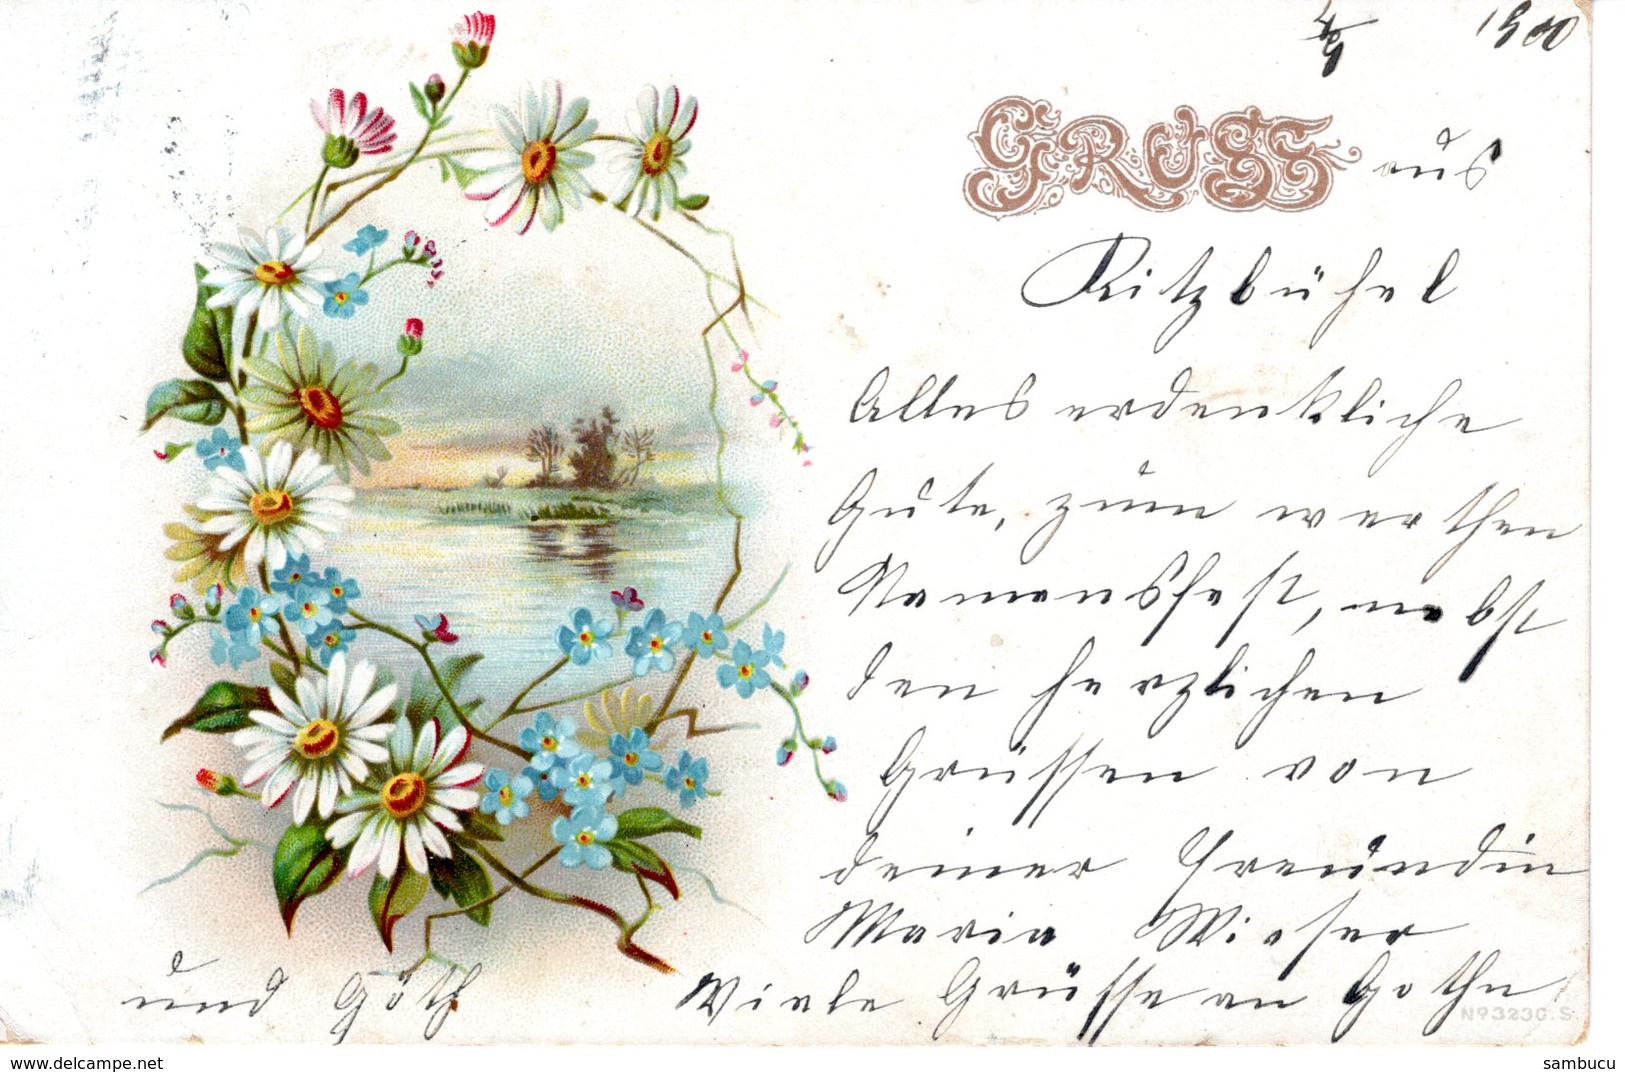 4/9 1900
GRUSS aus
Kitzbühel
Alles erdenkliche
Gute, zum werthen
Namensfest, nebst
den herzlichen
Grüssen von
deiner Freundin
Maria Wieser
Viele Grüsse an Gothe
und Göth
Nº 323 G.S
www.delcampe.net
sambucu